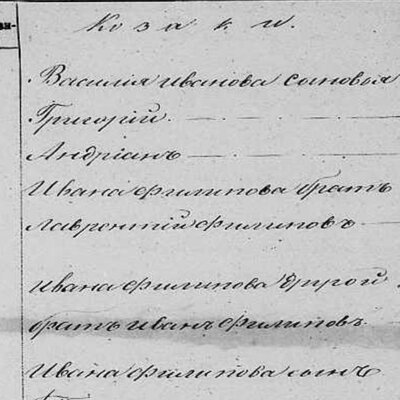 Козаки.
Василия Иванова сыновья
Григорий.
Андріанъ
Ивана Филипова братъ
Лаврентій Филиповъ
Ивана Филипова другой
братъ Иванъ Филиповъ.
Ивана Филипова сынъ